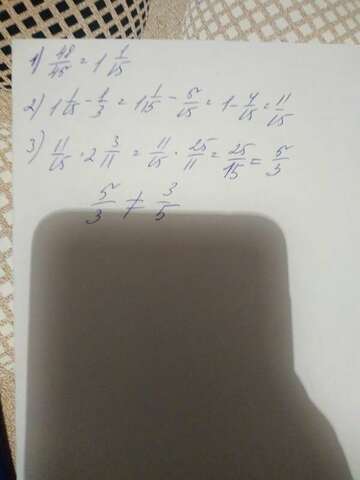 1) 48/45 = 1 1/15
2) 1 1/15 - 1/3 = 1 1/15 - 5/15 = 1 - 4/15 = 11/15
3) 11/15 · 2 3/11 = 11/15 · 25/11 = 25/15 = 5/3
5/3 ≠ 3/5